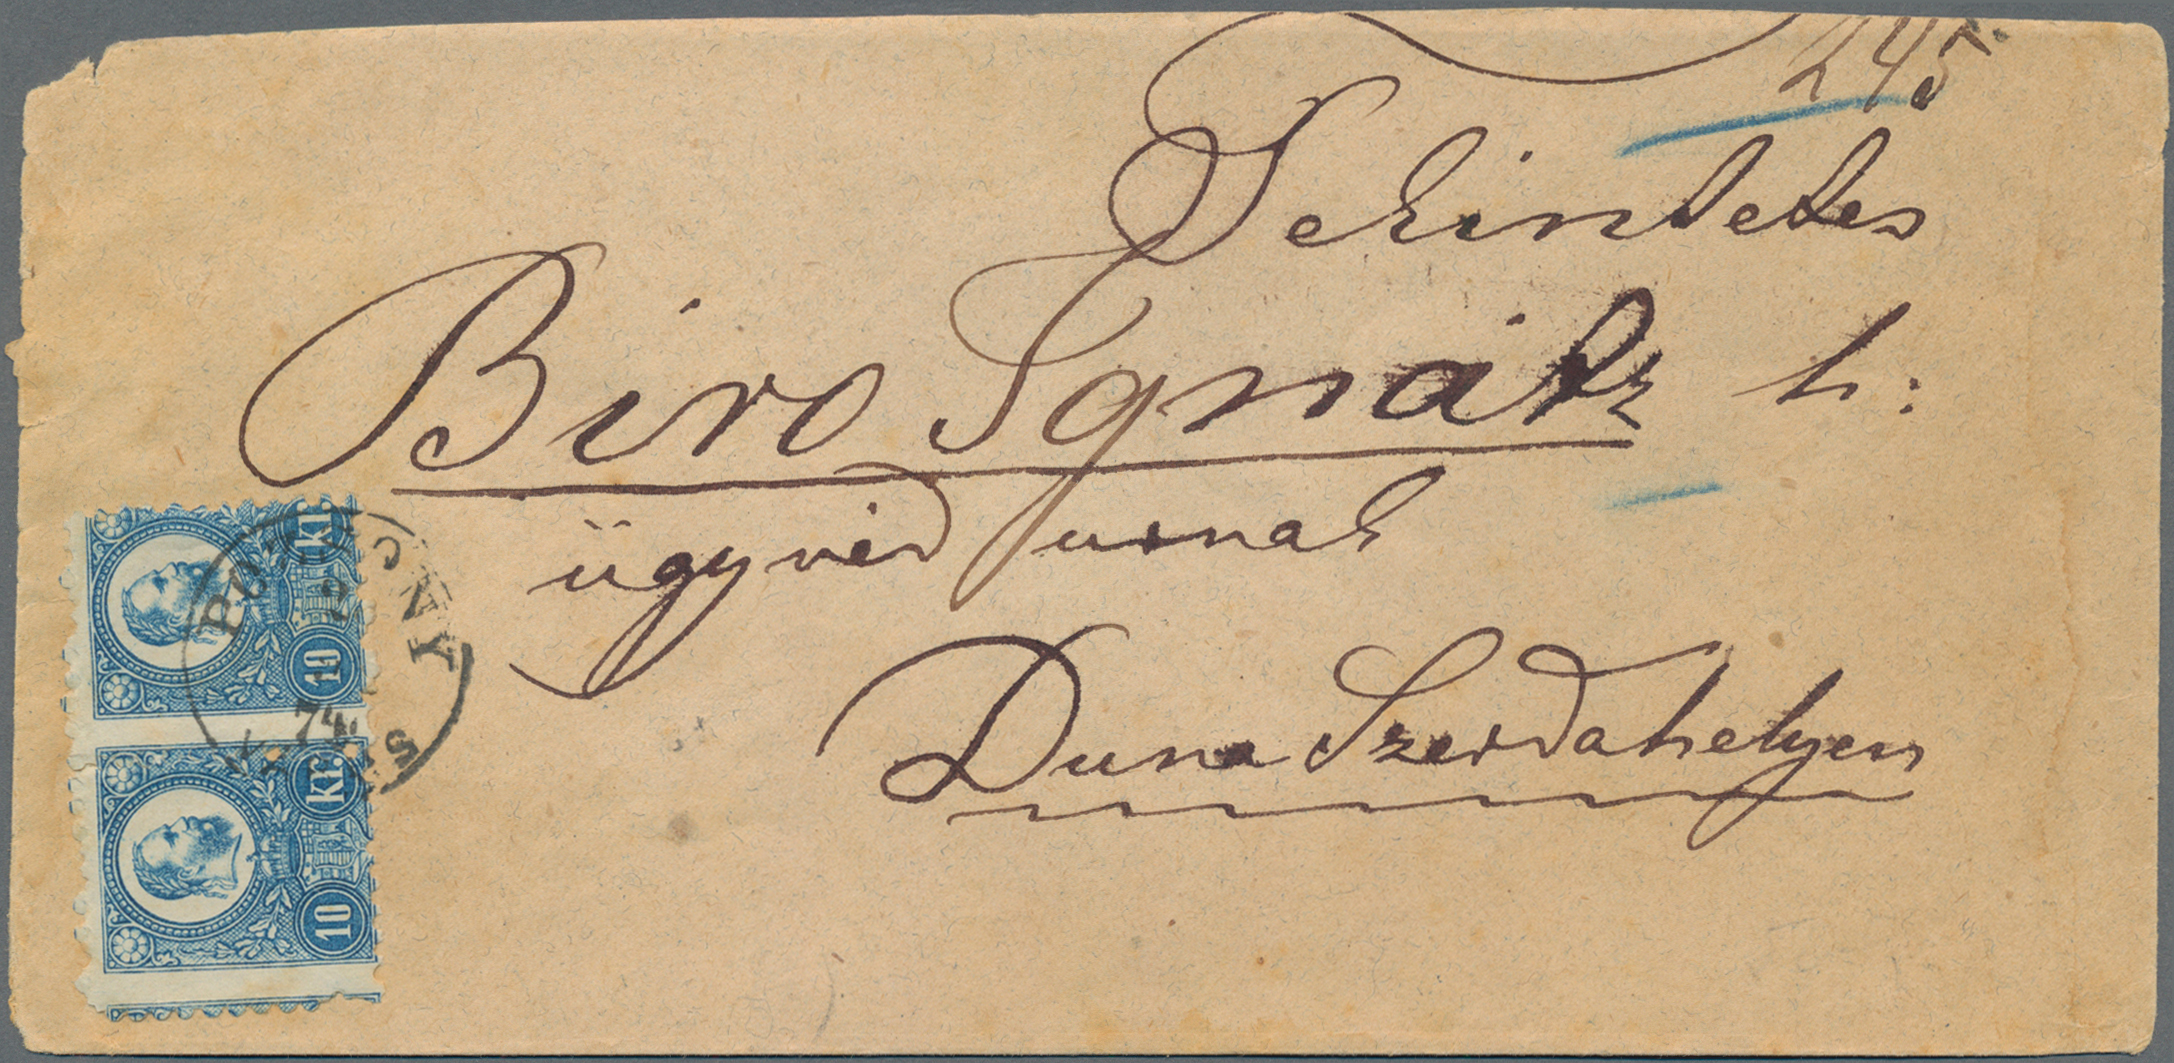 245
Tekintetes
Biro Ignátz h:
ügyvéd urnak
Duna Szerdahelyen
kr.
10
kr.
10
74